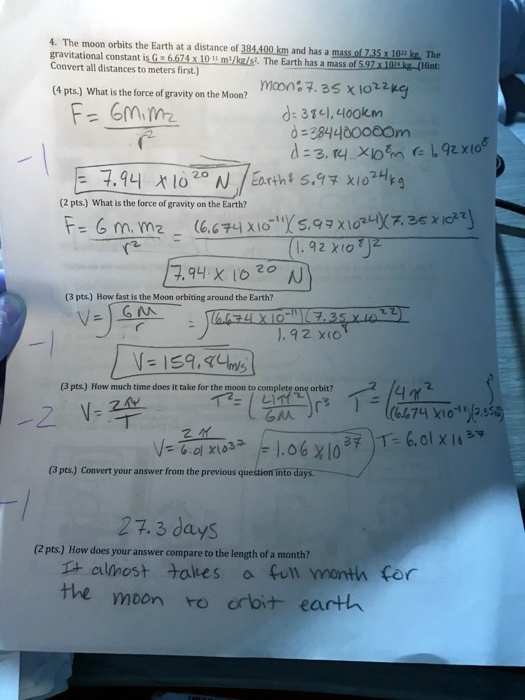 4. The moon orbits the Earth at a distance of 384,400 km and has a mass of 7.35 x 10²² kg. The
gravitational constant is G = 6.674 x 10⁻¹¹ m³/kg/s². The Earth has a mass of 5.97 x 10²⁴ kg. (Hint:
Convert all distances to meters first.)
(4 pts.) What is the force of gravity on the Moon?
Moon: 7.35 x 10²²kg
F = Gm₁m₂ / r²
d = 384,400km
d = 384400000m
d = 3.84 x 10⁸m r = 1.92 x 10⁸
-1
= 7.94 x 10²⁰ N
Earth: 5.97 x 10²⁴kg
(2 pts.) What is the force of gravity on the Earth?
F = G m₁ m₂ / r² = (6.674 x 10⁻¹¹)(5.97 x 10²⁴)(7.35 x 10²²) / (1.92 x 10⁸)²
7.94 x 10²⁰ N
(3 pts.) How fast is the Moon orbiting around the Earth?
V = √GM / r = √(6.674 x 10⁻¹¹)(7.35 x 10²²) / 1.92 x 10⁸
-1
V = 159.84m/s
(3 pts.) How much time does it take for the moon to complete one orbit?
-2
V = 2πr / T
T² = (4π² / GM) r³
T² = (4π² / (6.674 x 10⁻¹¹)(7.35
V = 2π / 6.01 x 10³⁷ = 1.06 x 10³⁷
T = 6.01 x 10³⁷
(3 pts.) Convert your answer from the previous question into days.
-1
27.3 days
(2 pts.) How does your answer compare to the length of a month?
It almost takes a full month for
the moon to orbit earth